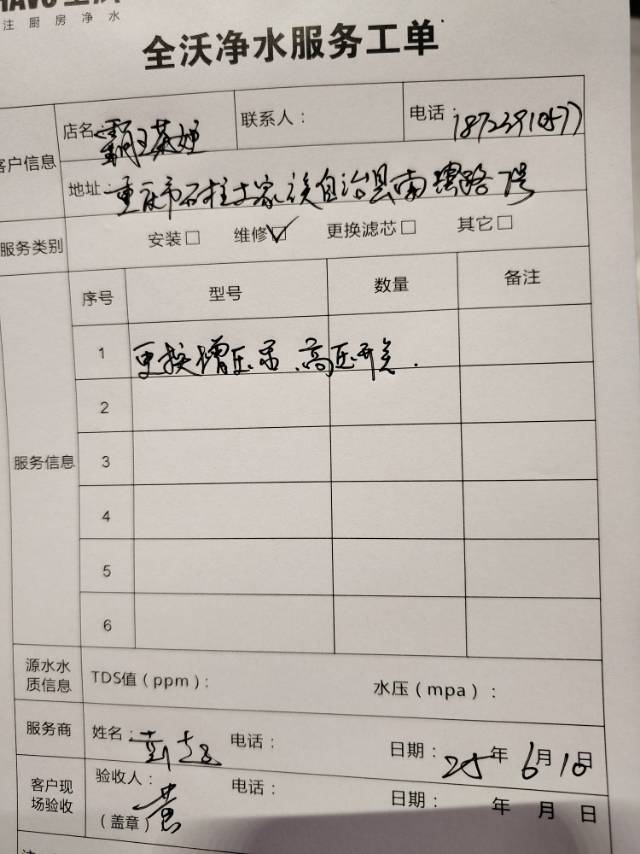 注厨房净水
全沃净水服务工单
客户信息
店名: 霸王茶姬
联系人：
电话：
地址: 重庆市石柱土家族自治县南宾路
服务类别
安装□ 维修☑ 更换滤芯□ 其它□
服务信息
序号 型号 数量 备注
1 更换增压泵、高压开关.
2
3
4
5
6
源水水质信息
TDS值（ppm）:
水压（mpa）:
服务商
姓名:
电话：
日期：25年6月10日
客户现场验收
验收人： 黄
（盖章）
电话：
日期： 年 月 日